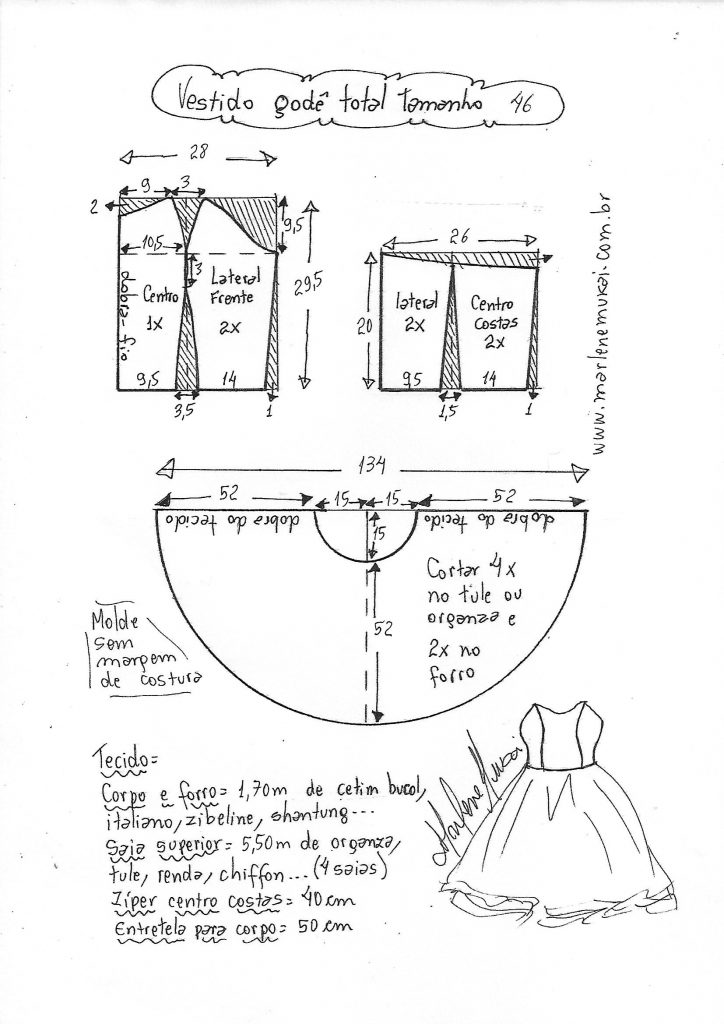 Vestido godê total Tamanho 46
28
9
3
2
9,5
10,5
3
29,5
dobra-fio
Centro
1x
Lateral
Frente
2x
9,5
14
3,5
1
26
20
lateral
2x
Centro
Costas
2x
9,5
14
1,5
1
www.marlenemukai.com.br
134
52
15
15
52
dobra do tecido
dobra do tecido
15
52
Cortar 4x
no tule ou
organza e
2x no
forro
Molde
sem
margem
de costura
Tecido=
Corpo e forro= 1,70m de cetim bucol,
italiano, zibeline, shantung...
Saia superior= 5,50m de organza,
tule, renda, chiffon... (4 saias)
Zíper centro costas= 40cm
Entretela para corpo= 50cm
Marlene Mukai